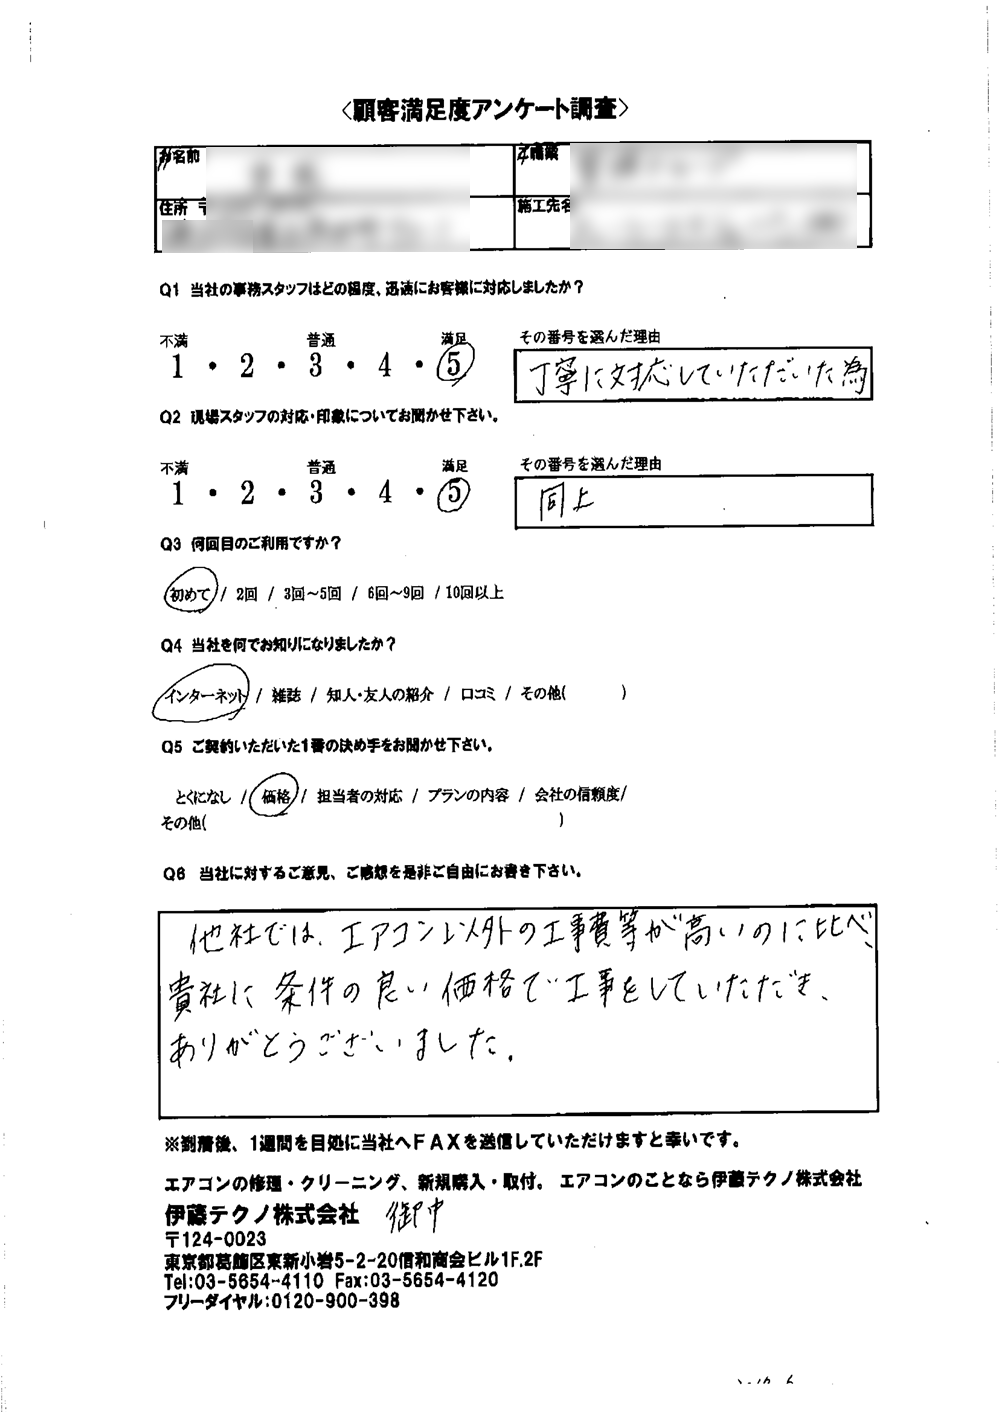 〈顧客満足度アンケート調査〉
お名前
ご職業
住所 〒
施工先名
Q1 当社の事務スタッフはどの程度、迅速にお客様に対応しましたか？
不満 普通 満足 その番号を選んだ理由
1 ・ 2 ・ 3 ・ 4 ・ 5
丁寧に対応していただいた為
Q2 現場スタッフの対応・印象についてお聞かせ下さい。
不満 普通 満足 その番号を選んだ理由
1 ・ 2 ・ 3 ・ 4 ・ 5
同上
Q3 何回目のご利用ですか？
初めて / 2回 / 3回～5回 / 6回～9回 / 10回以上
Q4 当社を何でお知りになりましたか？
インターネット / 雑誌 / 知人・友人の紹介 / 口コミ / その他( )
Q5 ご契約いただいた1番の決め手をお聞かせ下さい。
とくになし / 価格 / 担当者の対応 / プランの内容 / 会社の信頼度/
その他( )
Q6 当社に対するご意見、ご感想を是非ご自由にお書き下さい。
他社では、エアコン以外の工事費等が高いのに比べ、
貴社に条件の良い価格で工事をしていただき、
ありがとうございました。
※到着後、1週間を目処に当社へFAXを送信していただけますと幸いです。
エアコンの修理・クリーニング、新規購入・取付。エアコンのことなら伊藤テクノ株式会社
伊藤テクノ株式会社 御中
〒124-0023
東京都葛飾区東新小岩5-2-20信和商会ビル1F.2F
Tel:03-5654-4110 Fax:03-5654-4120
フリーダイヤル:0120-900-398